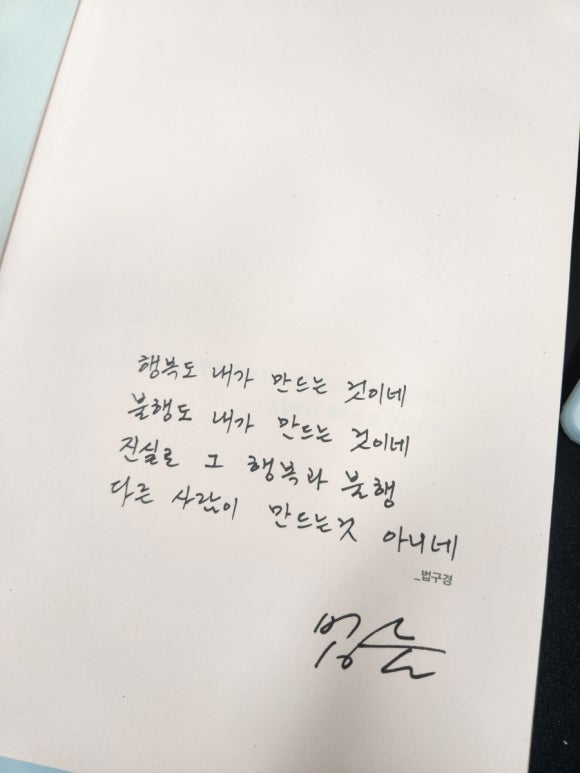 행복도 내가 만드는 것이네
불행도 내가 만드는 것이네
진실로 그 행복과 불행
다른 사람이 만드는것 아니네
_법구경
법륜